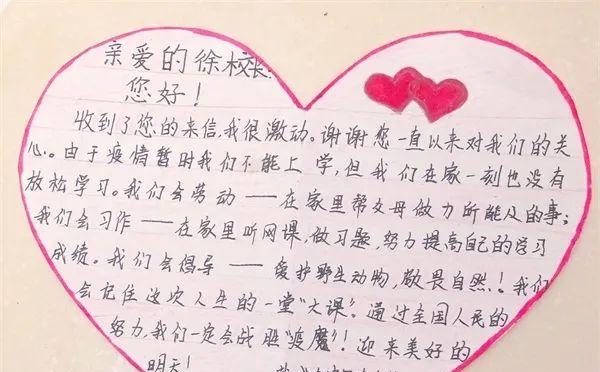 亲爱的徐校长:
您好!
收到了您的来信,我很激动。谢谢您一直以来对我们的关
心。由于疫情暂时我们不能上学,但我们在家一刻也没有
放松学习。我们会劳动——在家里帮父母做力所能及的事;
我们会习作——在家里听网课,做习题,努力提高自己的学习
成绩。我们会倡导——爱护野生动物,敬畏自然!我们
会记住这次人生的一堂“大课”。通过全国人民的
努力,我们一定会战胜“疫魔”!迎来美好的
明天!